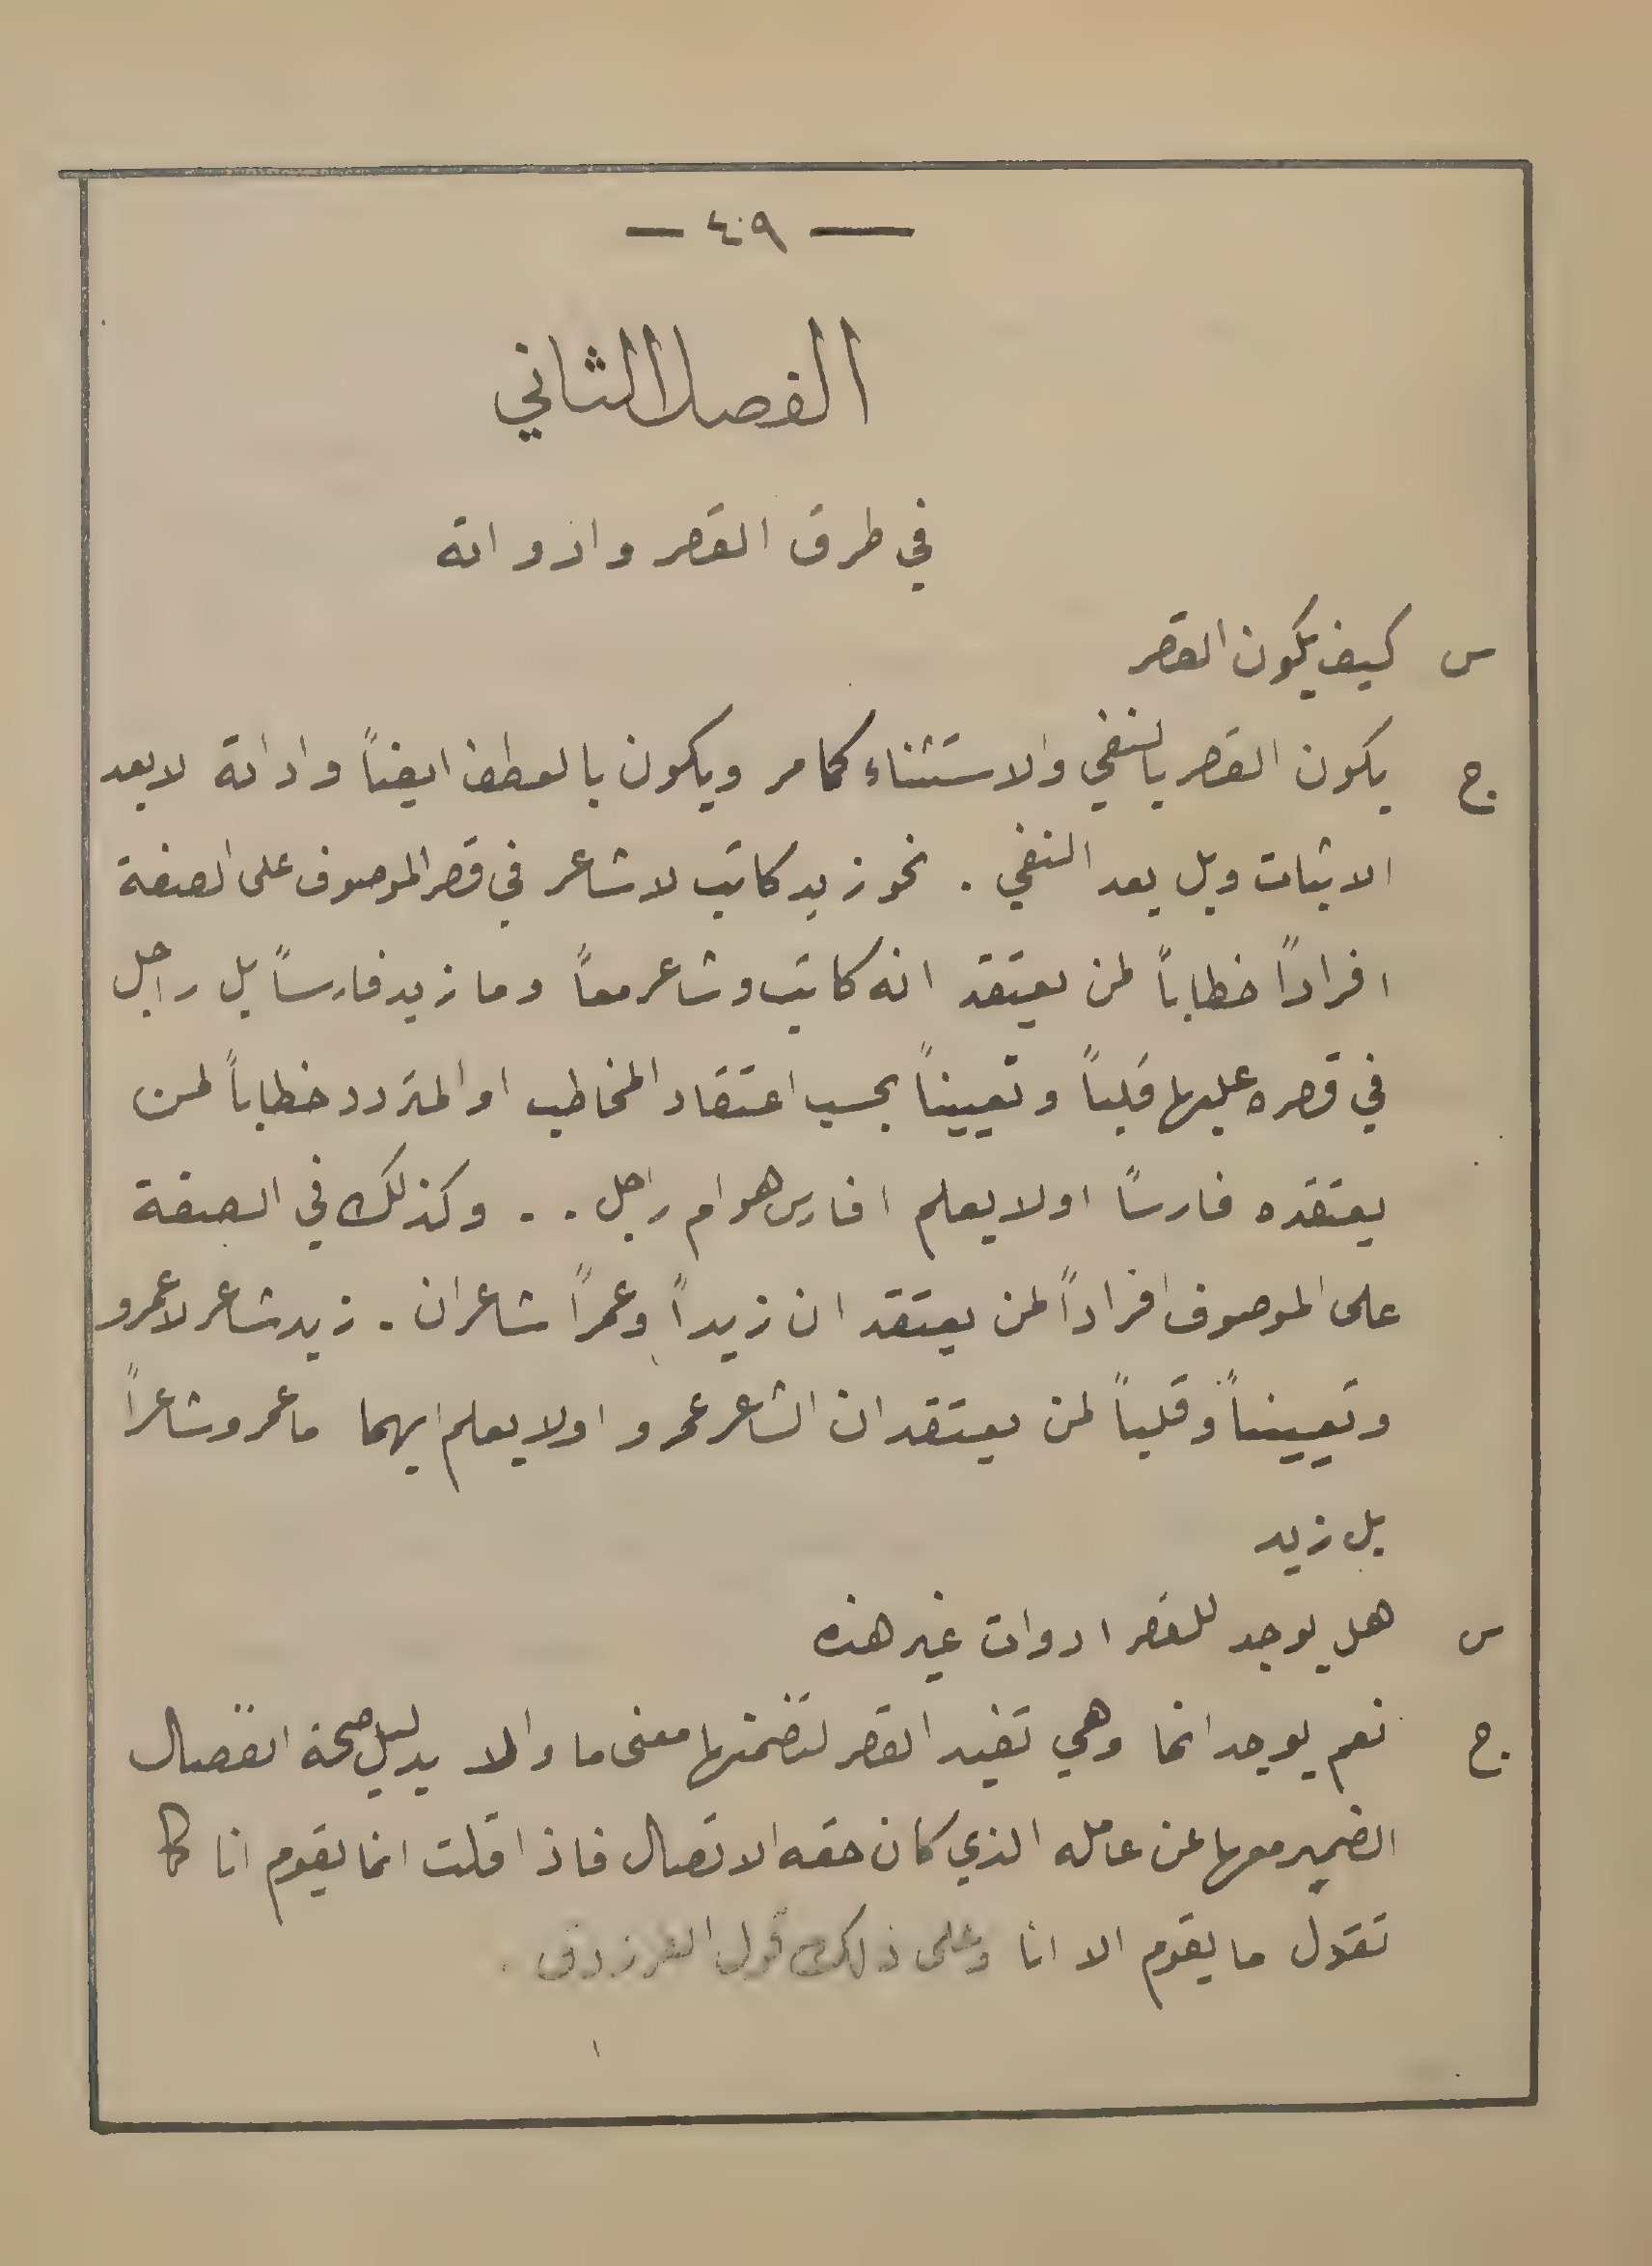 — ٤٠٩ —
الفصل الثاني
في طرق القصر وادواته
س كيف يكون القصر
ج يكون القصر بالنفي والاستثناء كما مر ويكون بالعطف ايضاً واداته لا بعد
الاثبات وبل بعد النفي . نحو زيد كاتب لا شاعر في قصر الموصوف على الصفة
افراداً خطاباً لمن يعتقد انه كاتب وشاعر معاً وما زيد فارساً بل راجل
في قصره عليها قلباً وتعييناً بحسب اعتقاد المخاطب او المتردد خطاباً لمن
يعتقده فارساً او لا يعلم افارس هو ام راجل .. وكذلك في الصفة
على الموصوف افراداً لمن يعتقد ان زيداً وعمراً شاعران . زيد شاعر لا عمرو
وتعييناً وقلباً لمن يعتقد ان الشاعر عمرو او لا يعلم ايهما ما عمرو شاعراً
بل زيد
س هل يوجد للقصر ادوات غير هذه
ج نعم يوجد انما وهي تفيد القصر لتضمنها معنى ما والا بدليل صحة انفصال
الضمير معها عن عامله الذي كان حقه الاتصال فاذا قلت انما يقوم انا كما
تقول ما يقوم الا انا وعلى ذلك قول الفرزدق .